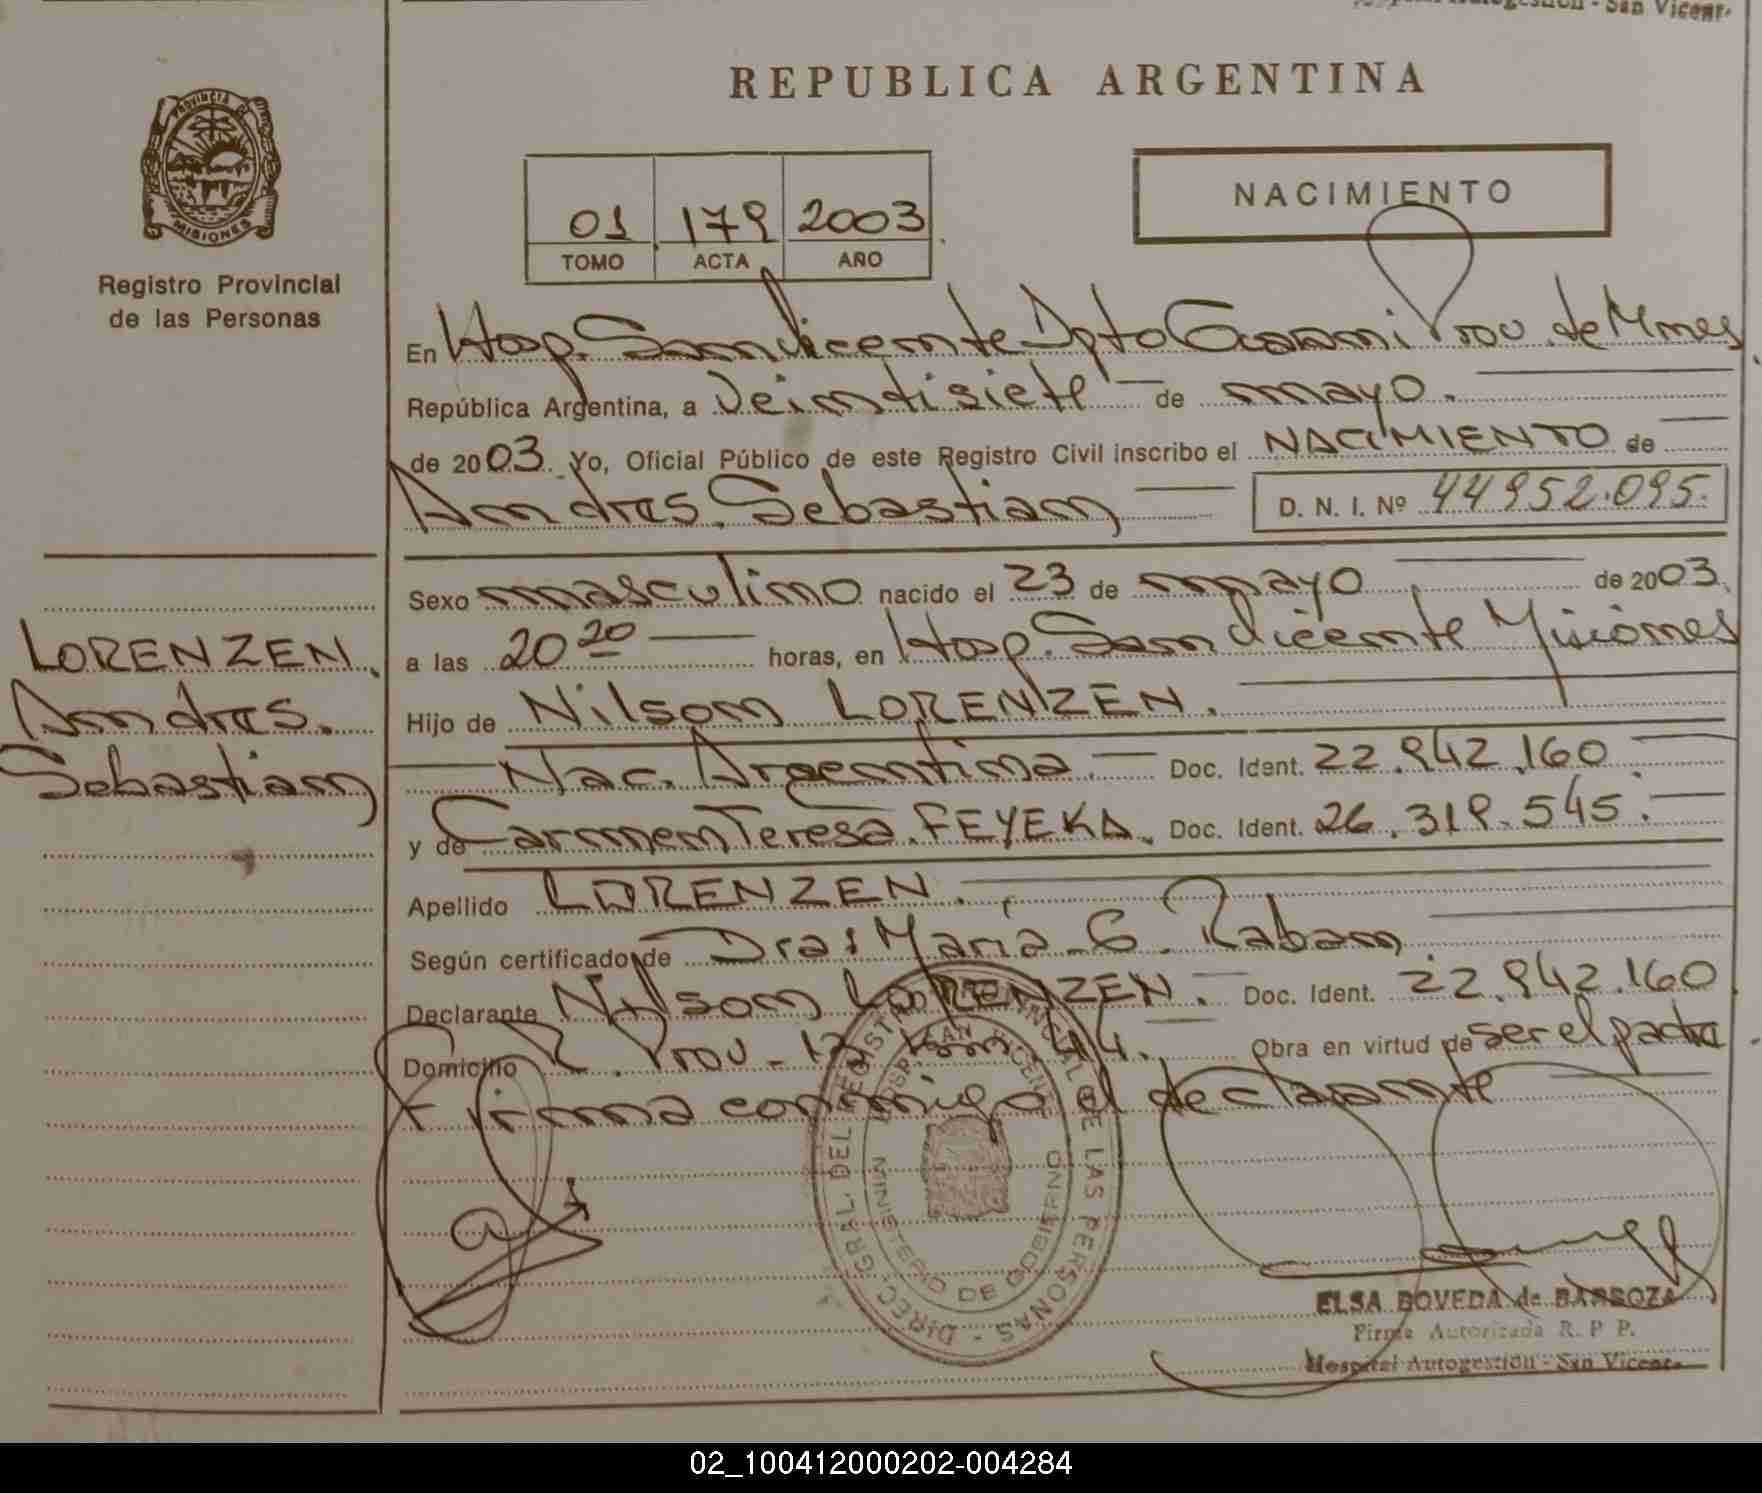 Hospital Autogestión - San Vicente
REPUBLICA ARGENTINA
PROVINCIA DE
MISIONES
Registro Provincial
de las Personas
01 179 2003
TOMO ACTA AÑO
NACIMIENTO
En Hosp. San Vicente Dpto Guarani Prov. de Mnes
República Argentina, a Veintisiete de mayo.
de 2003. Yo, Oficial Público de este Registro Civil inscribo el NACIMIENTO de
Andres. Sebastian D. N. I. Nº 44952.095.
LORENZEN.
Andres.
Sebastian
Sexo masculino nacido el 23 de mayo de 2003.
a las 20 20 horas, en Hosp. San Vicente Misiones
Hijo de Nilson LORENZEN.
Nac. Argentina. Doc. Ident. 22.942.160
y de Carmen Teresa. FEYEKA. Doc. Ident. 26.319.545.
Apellido LORENZEN.
Según certificado de Dra: Maria G. Raban
Declarante Nilson LORENZEN. Doc. Ident. 22.942.160
Domicilio R. Prov. 13 Km. 44. Obra en virtud de ser el padre
Firma conmigo el declarante
DIREC. GRAL. DEL REGISTRO PROVINCIAL DE LAS PERSONAS
HOSP. SAN VICENTE
MINISTERIO DE GOBIERNO
ELSA BOVEDA de BARBOZA
Firma Autorizada R. P. P.
Hospital Autogestión - San Vicente
02_100412000202-004284